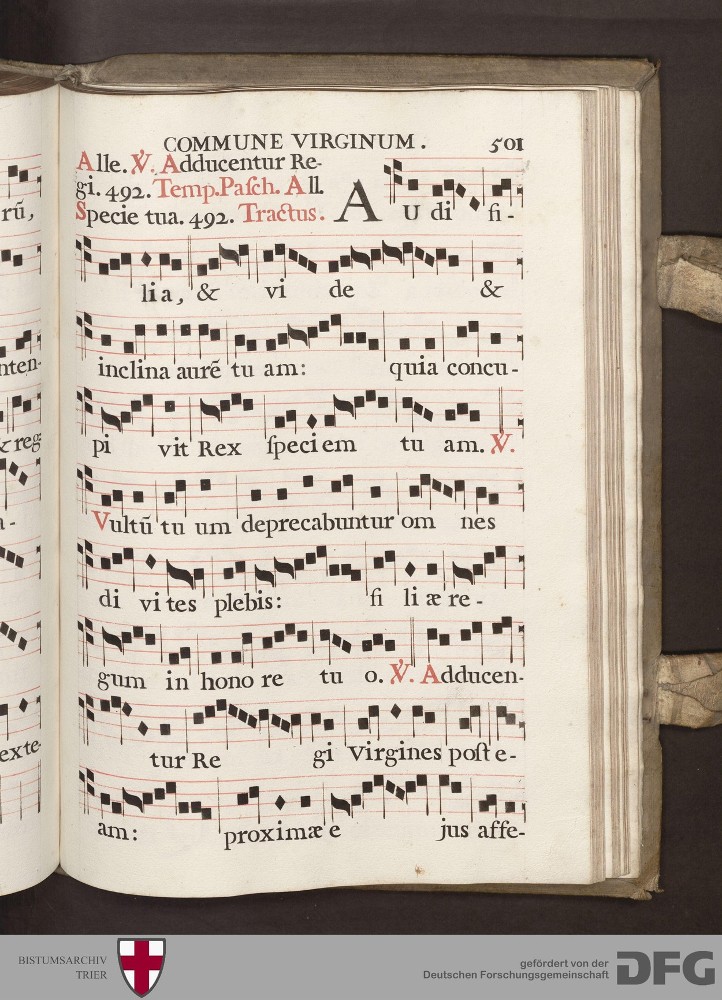 COMMUNE VIRGINUM. 501
Alle. ℣. Adducentur Re-
gi. 492. Temp. Pasch. All.
Specie tua. 492. Tractus. AUdi fi-
lia, & vi de &
inclina aurē tu am: quia concu-
pi vit Rex speciem tu am. ℣.
Vultū tu um deprecabuntur om nes
di vites plebis: fi li æ re-
gum in hono re tu o. ℣. Adducen-
tur Re gi Virgines post e-
am: proximæ e jus affe-
rū,
nten-
& reg
a-
exte-
BISTUMSARCHIV
TRIER
gefördert von der
Deutschen Forschungsgemeinschaft
DFG